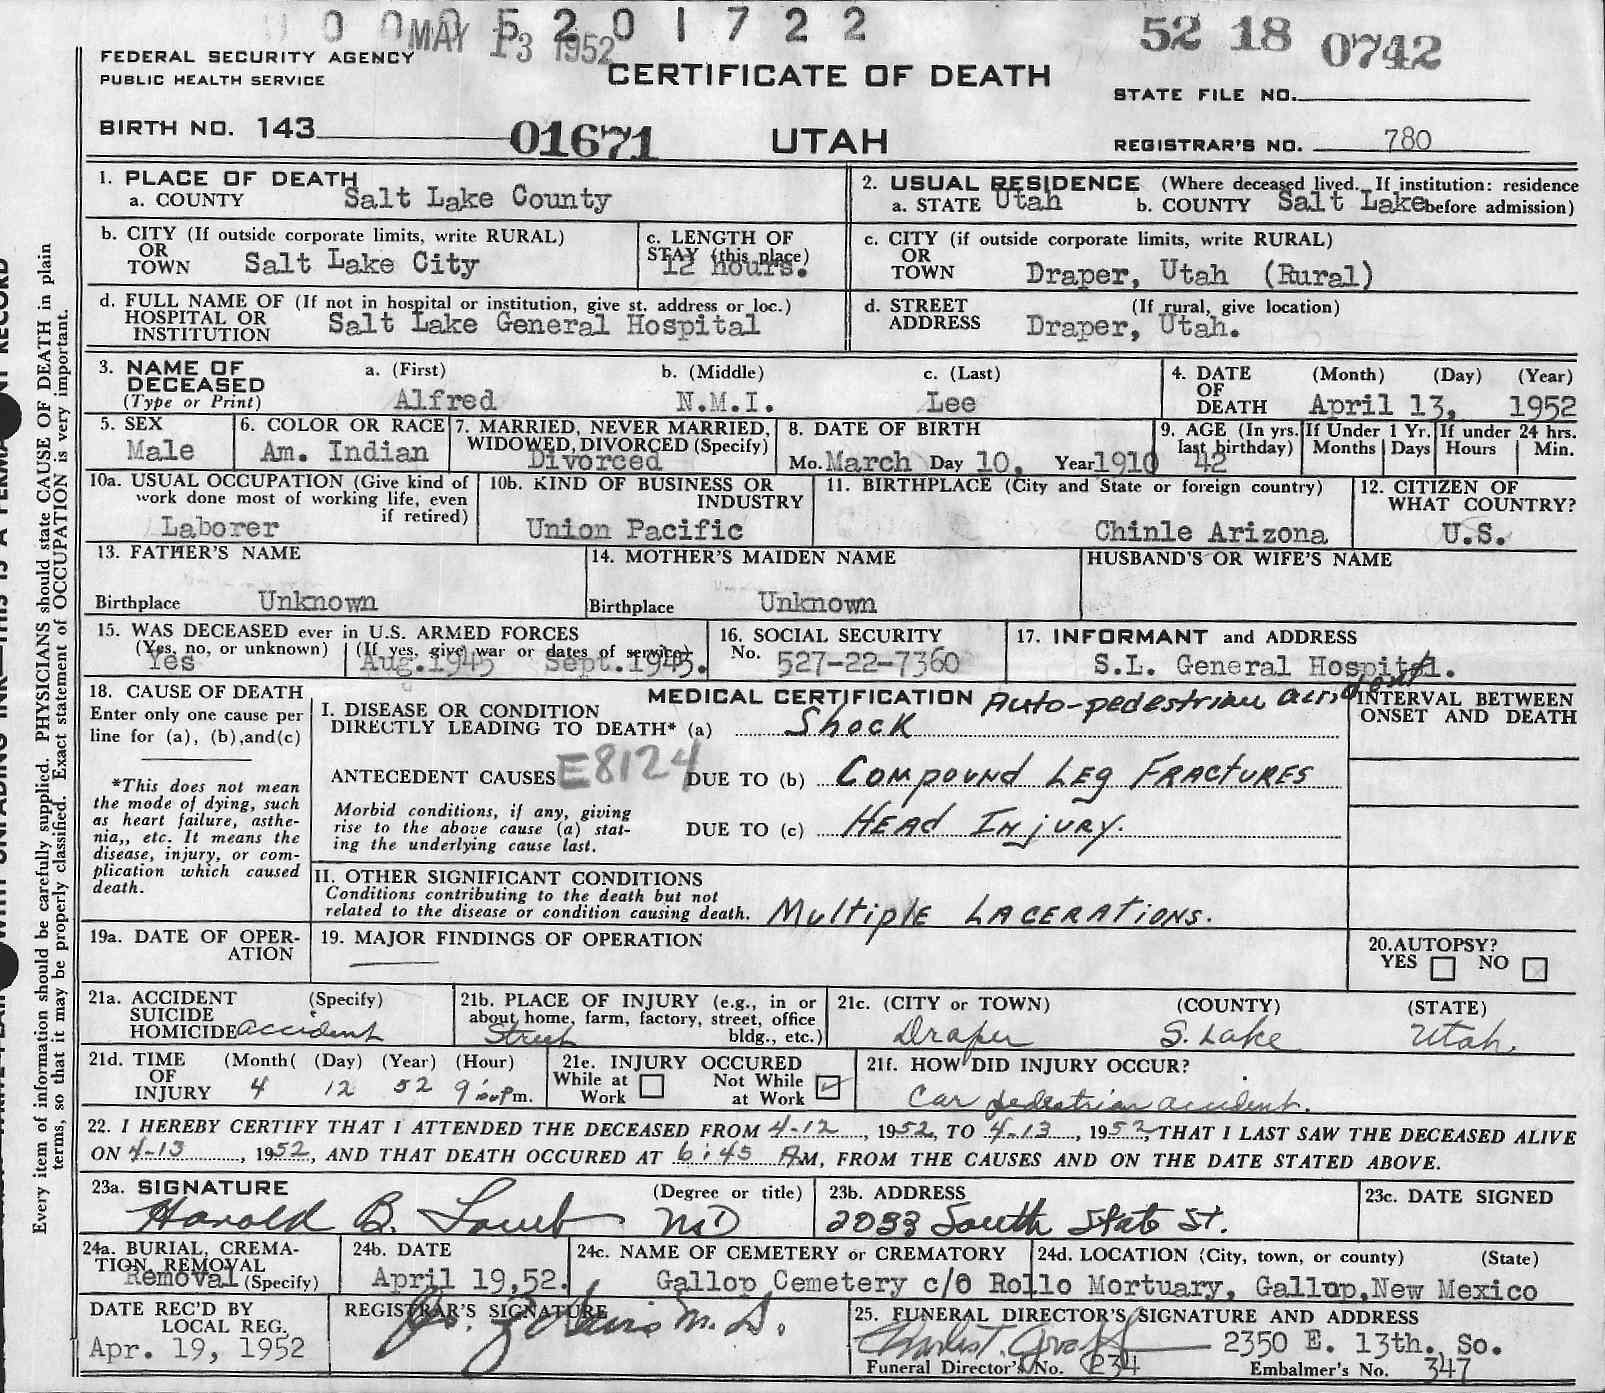 0 0 0 5 2 0 1 7 2 2
MAY 13 1952
52 18 0742
FEDERAL SECURITY AGENCY
PUBLIC HEALTH SERVICE
CERTIFICATE OF DEATH
STATE FILE NO.
BIRTH NO. 143 01671 UTAH REGISTRAR'S NO. 780
1. PLACE OF DEATH
a. COUNTY Salt Lake County
2. USUAL RESIDENCE (Where deceased lived. If institution: residence before admission)
a. STATE Utah b. COUNTY Salt Lake
b. CITY (If outside corporate limits, write RURAL)
OR
TOWN Salt Lake City
c. LENGTH OF
STAY (this place)
12 hours.
c. CITY (if outside corporate limits, write RURAL)
OR
TOWN Draper, Utah (Rural)
d. FULL NAME OF (If not in hospital or institution, give st. address or loc.)
HOSPITAL OR
INSTITUTION Salt Lake General Hospital
d. STREET (If rural, give location)
ADDRESS Draper, Utah.
3. NAME OF
DECEASED
(Type or Print)
a. (First) b. (Middle) c. (Last)
Alfred N.M.I. Lee
4. DATE (Month) (Day) (Year)
OF
DEATH April 13, 1952
5. SEX
Male
6. COLOR OR RACE
Am. Indian
7. MARRIED, NEVER MARRIED,
WIDOWED, DIVORCED (Specify)
Divorced
8. DATE OF BIRTH
Mo. March Day 10, Year 1910
9. AGE (In yrs.
last birthday)
42
If Under 1 Yr.
Months Days
If under 24 hrs.
Hours Min.
10a. USUAL OCCUPATION (Give kind of
work done most of working life, even
if retired)
Laborer
10b. KIND OF BUSINESS OR
INDUSTRY
Union Pacific
11. BIRTHPLACE (City and State or foreign country)
Chinle Arizona
12. CITIZEN OF
WHAT COUNTRY?
U.S.
13. FATHER'S NAME
Birthplace Unknown
14. MOTHER'S MAIDEN NAME
Birthplace Unknown
HUSBAND'S OR WIFE'S NAME
15. WAS DECEASED ever in U.S. ARMED FORCES
(Yes, no, or unknown) (If yes, give war or dates of service)
Yes Aug.1945 Sept.1945.
16. SOCIAL SECURITY
No. 527-22-7360
17. INFORMANT and ADDRESS
S.L. General Hospital.
18. CAUSE OF DEATH
Enter only one cause per
line for (a), (b), and (c)
*This does not mean
the mode of dying, such
as heart failure, asthe-
nia,, etc. It means the
disease, injury, or com-
plication which caused
death.
MEDICAL CERTIFICATION Auto-pedestrian accident
I. DISEASE OR CONDITION
DIRECTLY LEADING TO DEATH* (a) Shock
INTERVAL BETWEEN
ONSET AND DEATH
ANTECEDENT CAUSES E8124 DUE TO (b) Compound Leg Fractures
Morbid conditions, if any, giving
rise to the above cause (a) stat-
ing the underlying cause last.
DUE TO (c) Head Injury.
II. OTHER SIGNIFICANT CONDITIONS
Conditions contributing to the death but not
related to the disease or condition causing death. Multiple Lacerations.
19a. DATE OF OPER-
ATION
19. MAJOR FINDINGS OF OPERATION
20. AUTOPSY?
YES NO
21a. ACCIDENT (Specify)
SUICIDE
HOMICIDE accident
21b. PLACE OF INJURY (e.g., in or
about home, farm, factory, street, office
bldg., etc.)
Street
21c. (CITY or TOWN) (COUNTY) (STATE)
Draper S. Lake Utah.
21d. TIME (Month( (Day) (Year) (Hour)
OF
INJURY 4 12 52 9:00 Pm.
21e. INJURY OCCURED
While at Work
Not While at Work
21f. HOW DID INJURY OCCUR?
Car pedestrian accident.
22. I HEREBY CERTIFY THAT I ATTENDED THE DECEASED FROM 4-12, 1952, TO 4-13, 1952, THAT I LAST SAW THE DECEASED ALIVE
ON 4-13, 1952, AND THAT DEATH OCCURED AT 6:45 AM, FROM THE CAUSES AND ON THE DATE STATED ABOVE.
23a. SIGNATURE (Degree or title)
Harold B. Lamb MD
23b. ADDRESS
2033 South State St.
23c. DATE SIGNED
24a. BURIAL, CREMA-
TION, REMOVAL
(Specify)
Removal
24b. DATE
April 19,52.
24c. NAME OF CEMETERY or CREMATORY
24d. LOCATION (City, town, or county) (State)
Gallop Cemetery c/o Rollo Mortuary, Gallop, New Mexico
DATE REC'D BY
LOCAL REG.
Apr. 19, 1952
REGISTRAR'S SIGNATURE
M.D.
25. FUNERAL DIRECTOR'S SIGNATURE AND ADDRESS
2350 E. 13th. So.
Funeral Director's No. 234 Embalmer's No. 347
Every item of information should be carefully supplied. PHYSICIANS should state CAUSE OF DEATH in plain
terms, so that it may be properly classified. Exact statement of OCCUPATION is very important.